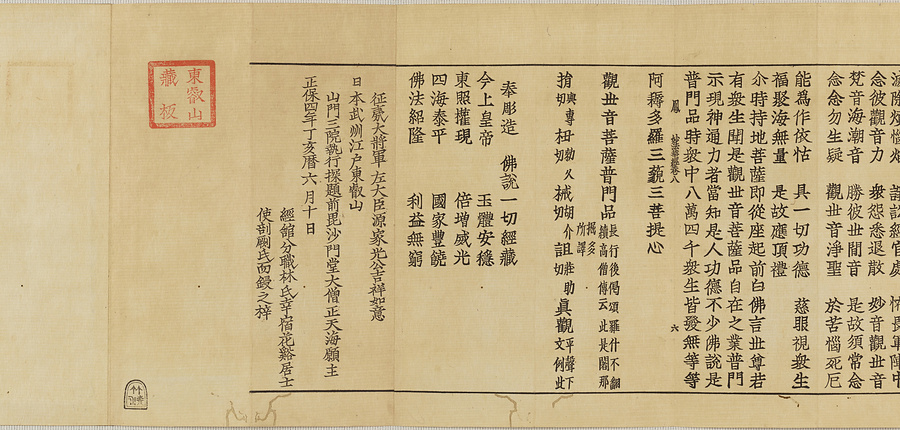 念彼觀音力　衆怨悉退散　妙音觀世音
梵音海潮音　勝彼世間音　是故須常念
念念勿生疑　觀世音淨聖　於苦惱死厄
能爲作依怙　具一切功德　慈眼視衆生
福聚海無量　是故應頂禮
尒時持地菩薩即從座起前白佛言世尊若
有衆生聞是觀世音菩薩品自在之業普門
示現神通力者當知是人功德不少佛說是
普門品時衆中八萬四千衆生皆發無等等
鳳
六
阿耨多羅三藐三菩提心
觀世音菩薩普門品
長行後偈頌羅什不翻
續高僧傳云此是闍那
掘多
所譯
奉彫造　佛說一切經藏
今上皇帝　玉體安穩
東照權現　倍增威光
四海泰平　國家豐饒
佛法紹隆　利益無窮
征夷大將軍左大臣源家光公吉祥如意
日本武州江戶東叡山
山門三院執行探題前毘沙門堂大僧正天海願主
正保四年丁亥曆六月十日
經館分職林氏幸宿花谿居士
使剞劂氏面鋟之梓
東叡山
藏板